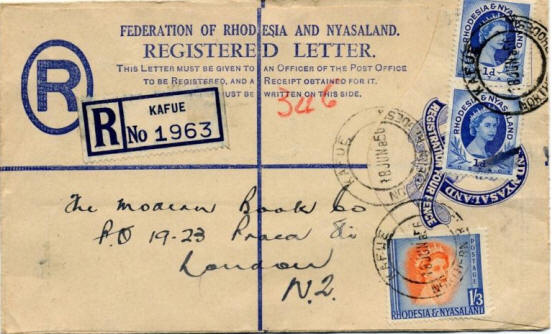 FEDERATION OF RHODESIA AND NYASALAND.
REGISTERED LETTER.
THIS LETTER MUST BE GIVEN TO AN OFFICER OF THE POST OFFICE
TO BE REGISTERED, AND A RECEIPT OBTAINED FOR IT.
MUST BE WRITTEN ON THIS SIDE.
R
346
R
KAFUE
No 1963
RHODESIA & NYASALAND
1d
RHODESIA & NYASALAND
1d
REGISTRATION FOUR PENCE
AND NYASALAND
KAFUE
18 JUN 56
KAFUE
18 JUN 56
KAFUE
18 JUN 56
The Modern Book Co
P.O 19-23 Praed St
London
N.2.
POSTAGE
1/3
RHODESIA & NYASALAND